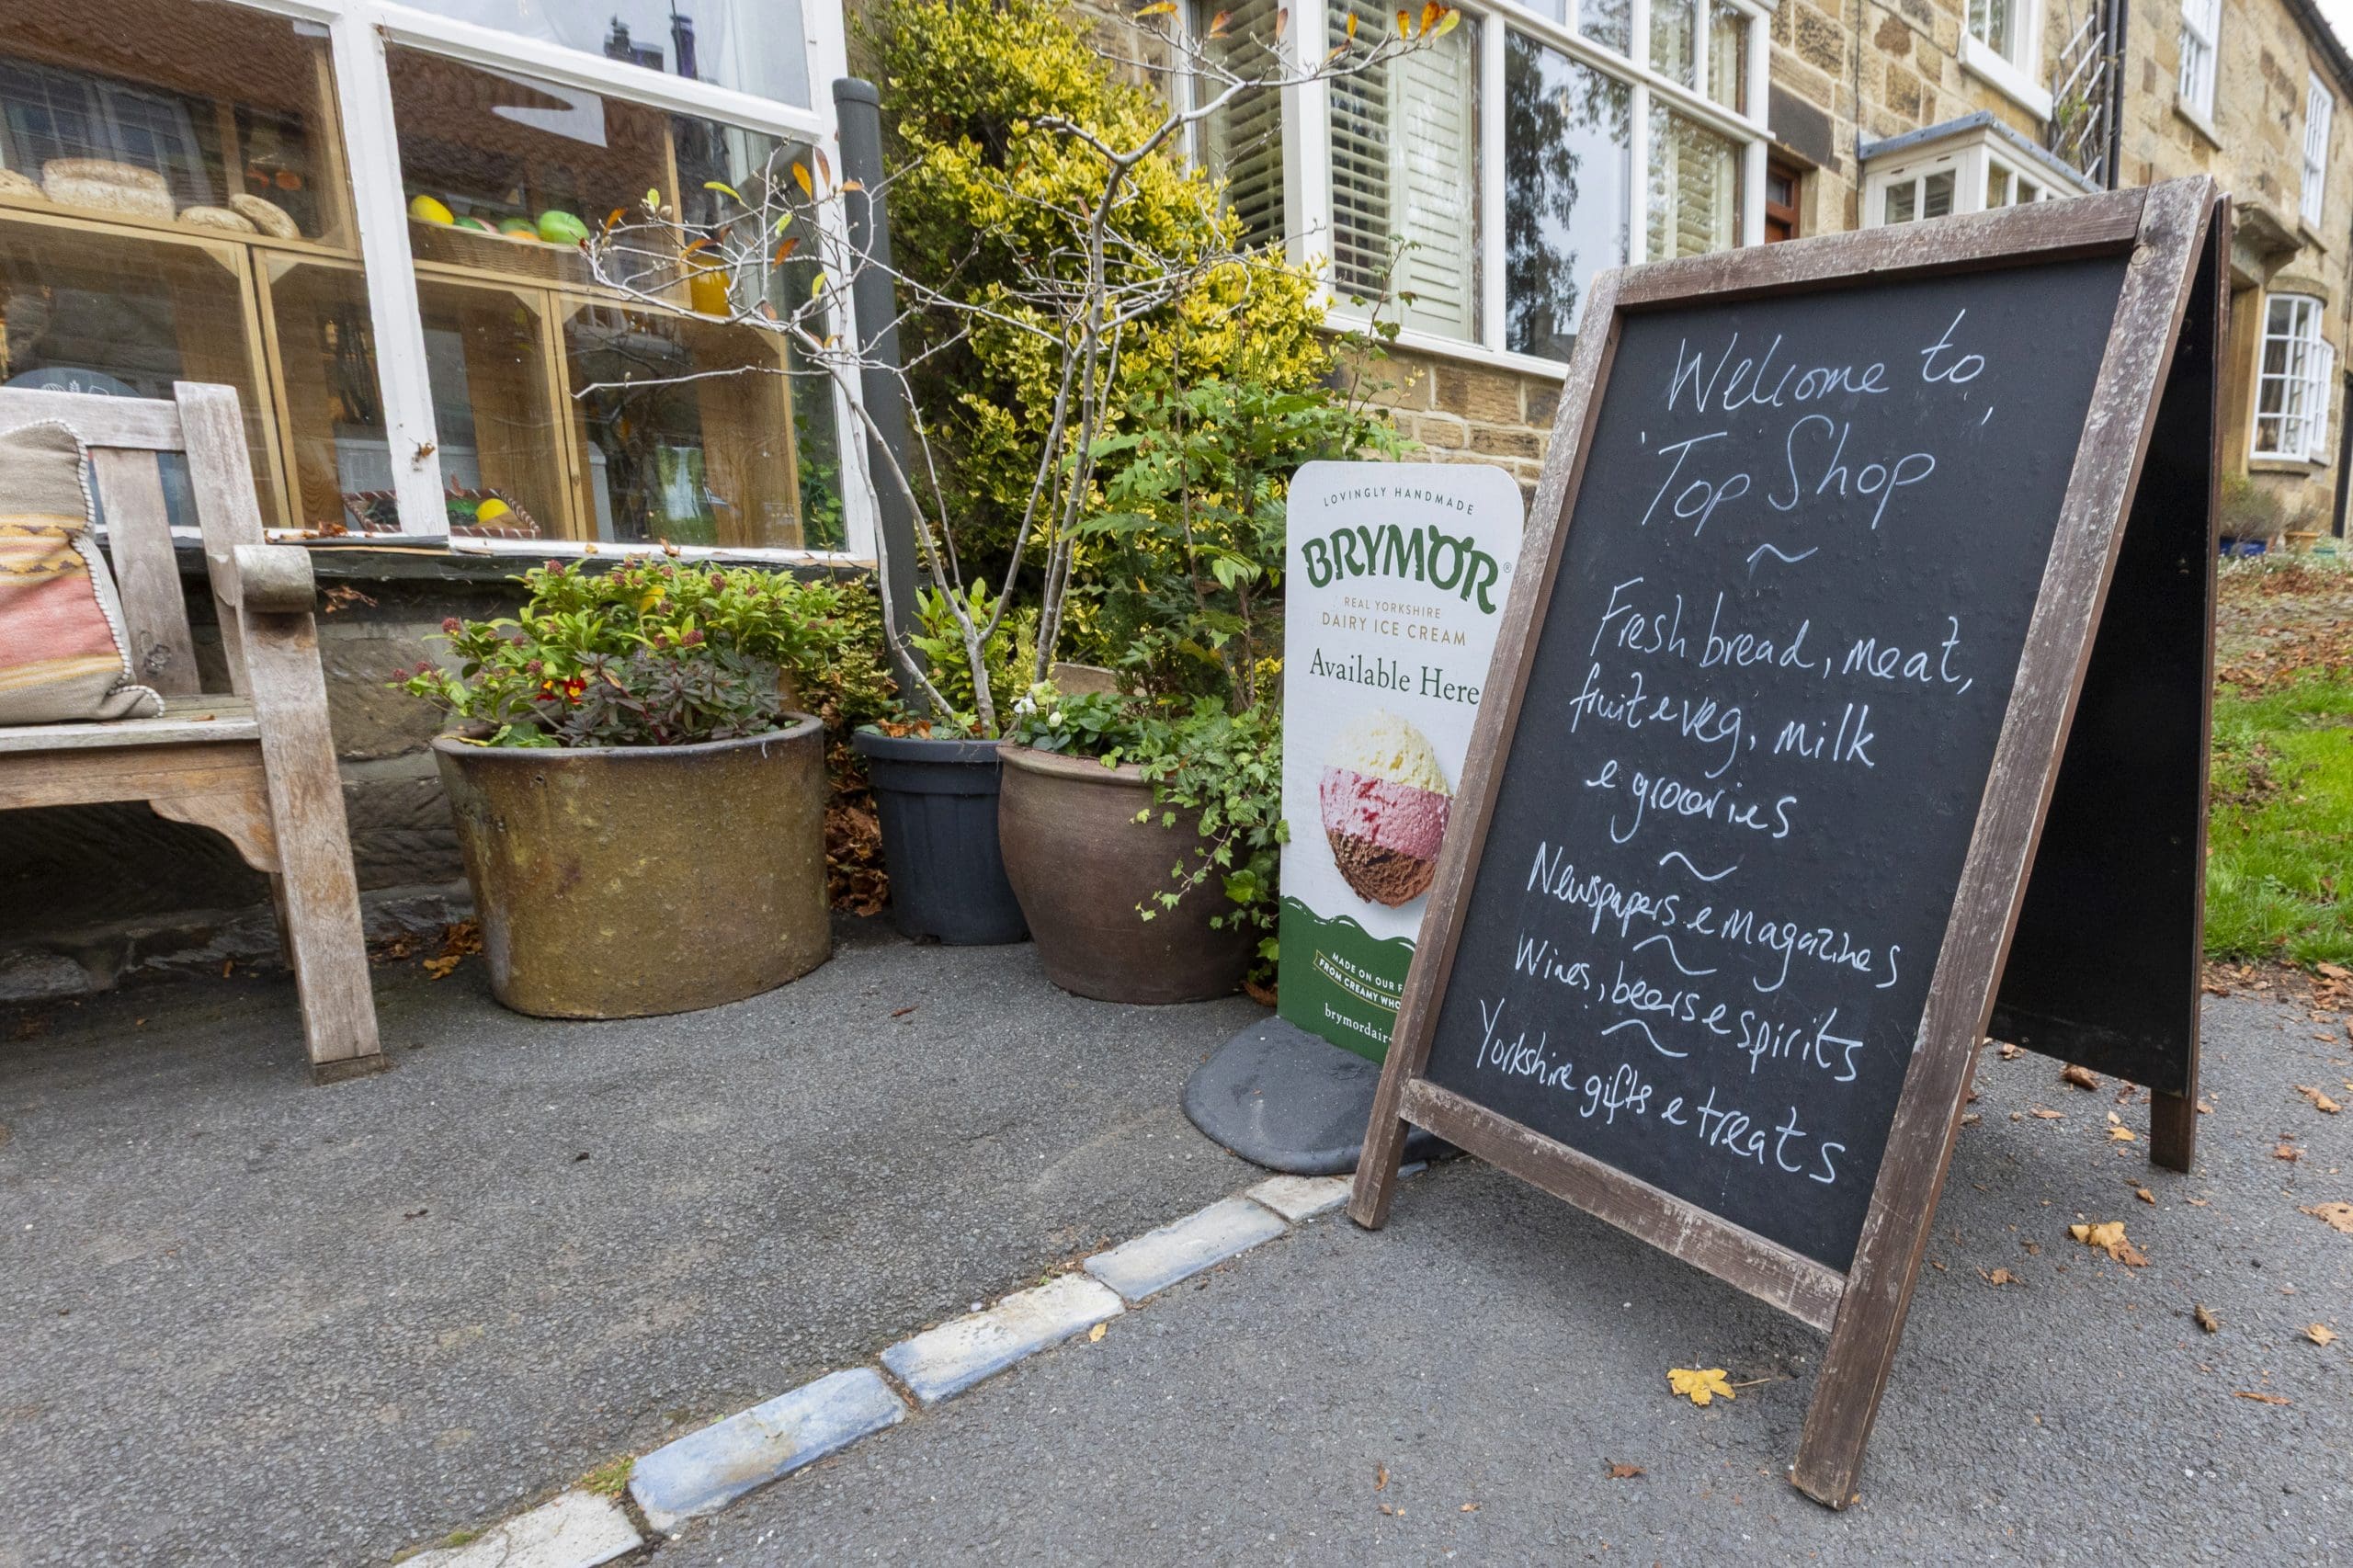 Welcome to
'Top Shop'
~
Fresh bread, meat,
fruit & veg, milk
& groceries
~
Newspapers & Magazines
~
Wines, beers & spirits
~
Yorkshire gifts & treats
LOVINGLY HANDMADE
BRYMOR®
REAL YORKSHIRE
DAIRY ICE CREAM
Available Here
MADE ON OUR
FROM CREAMY
brymordair